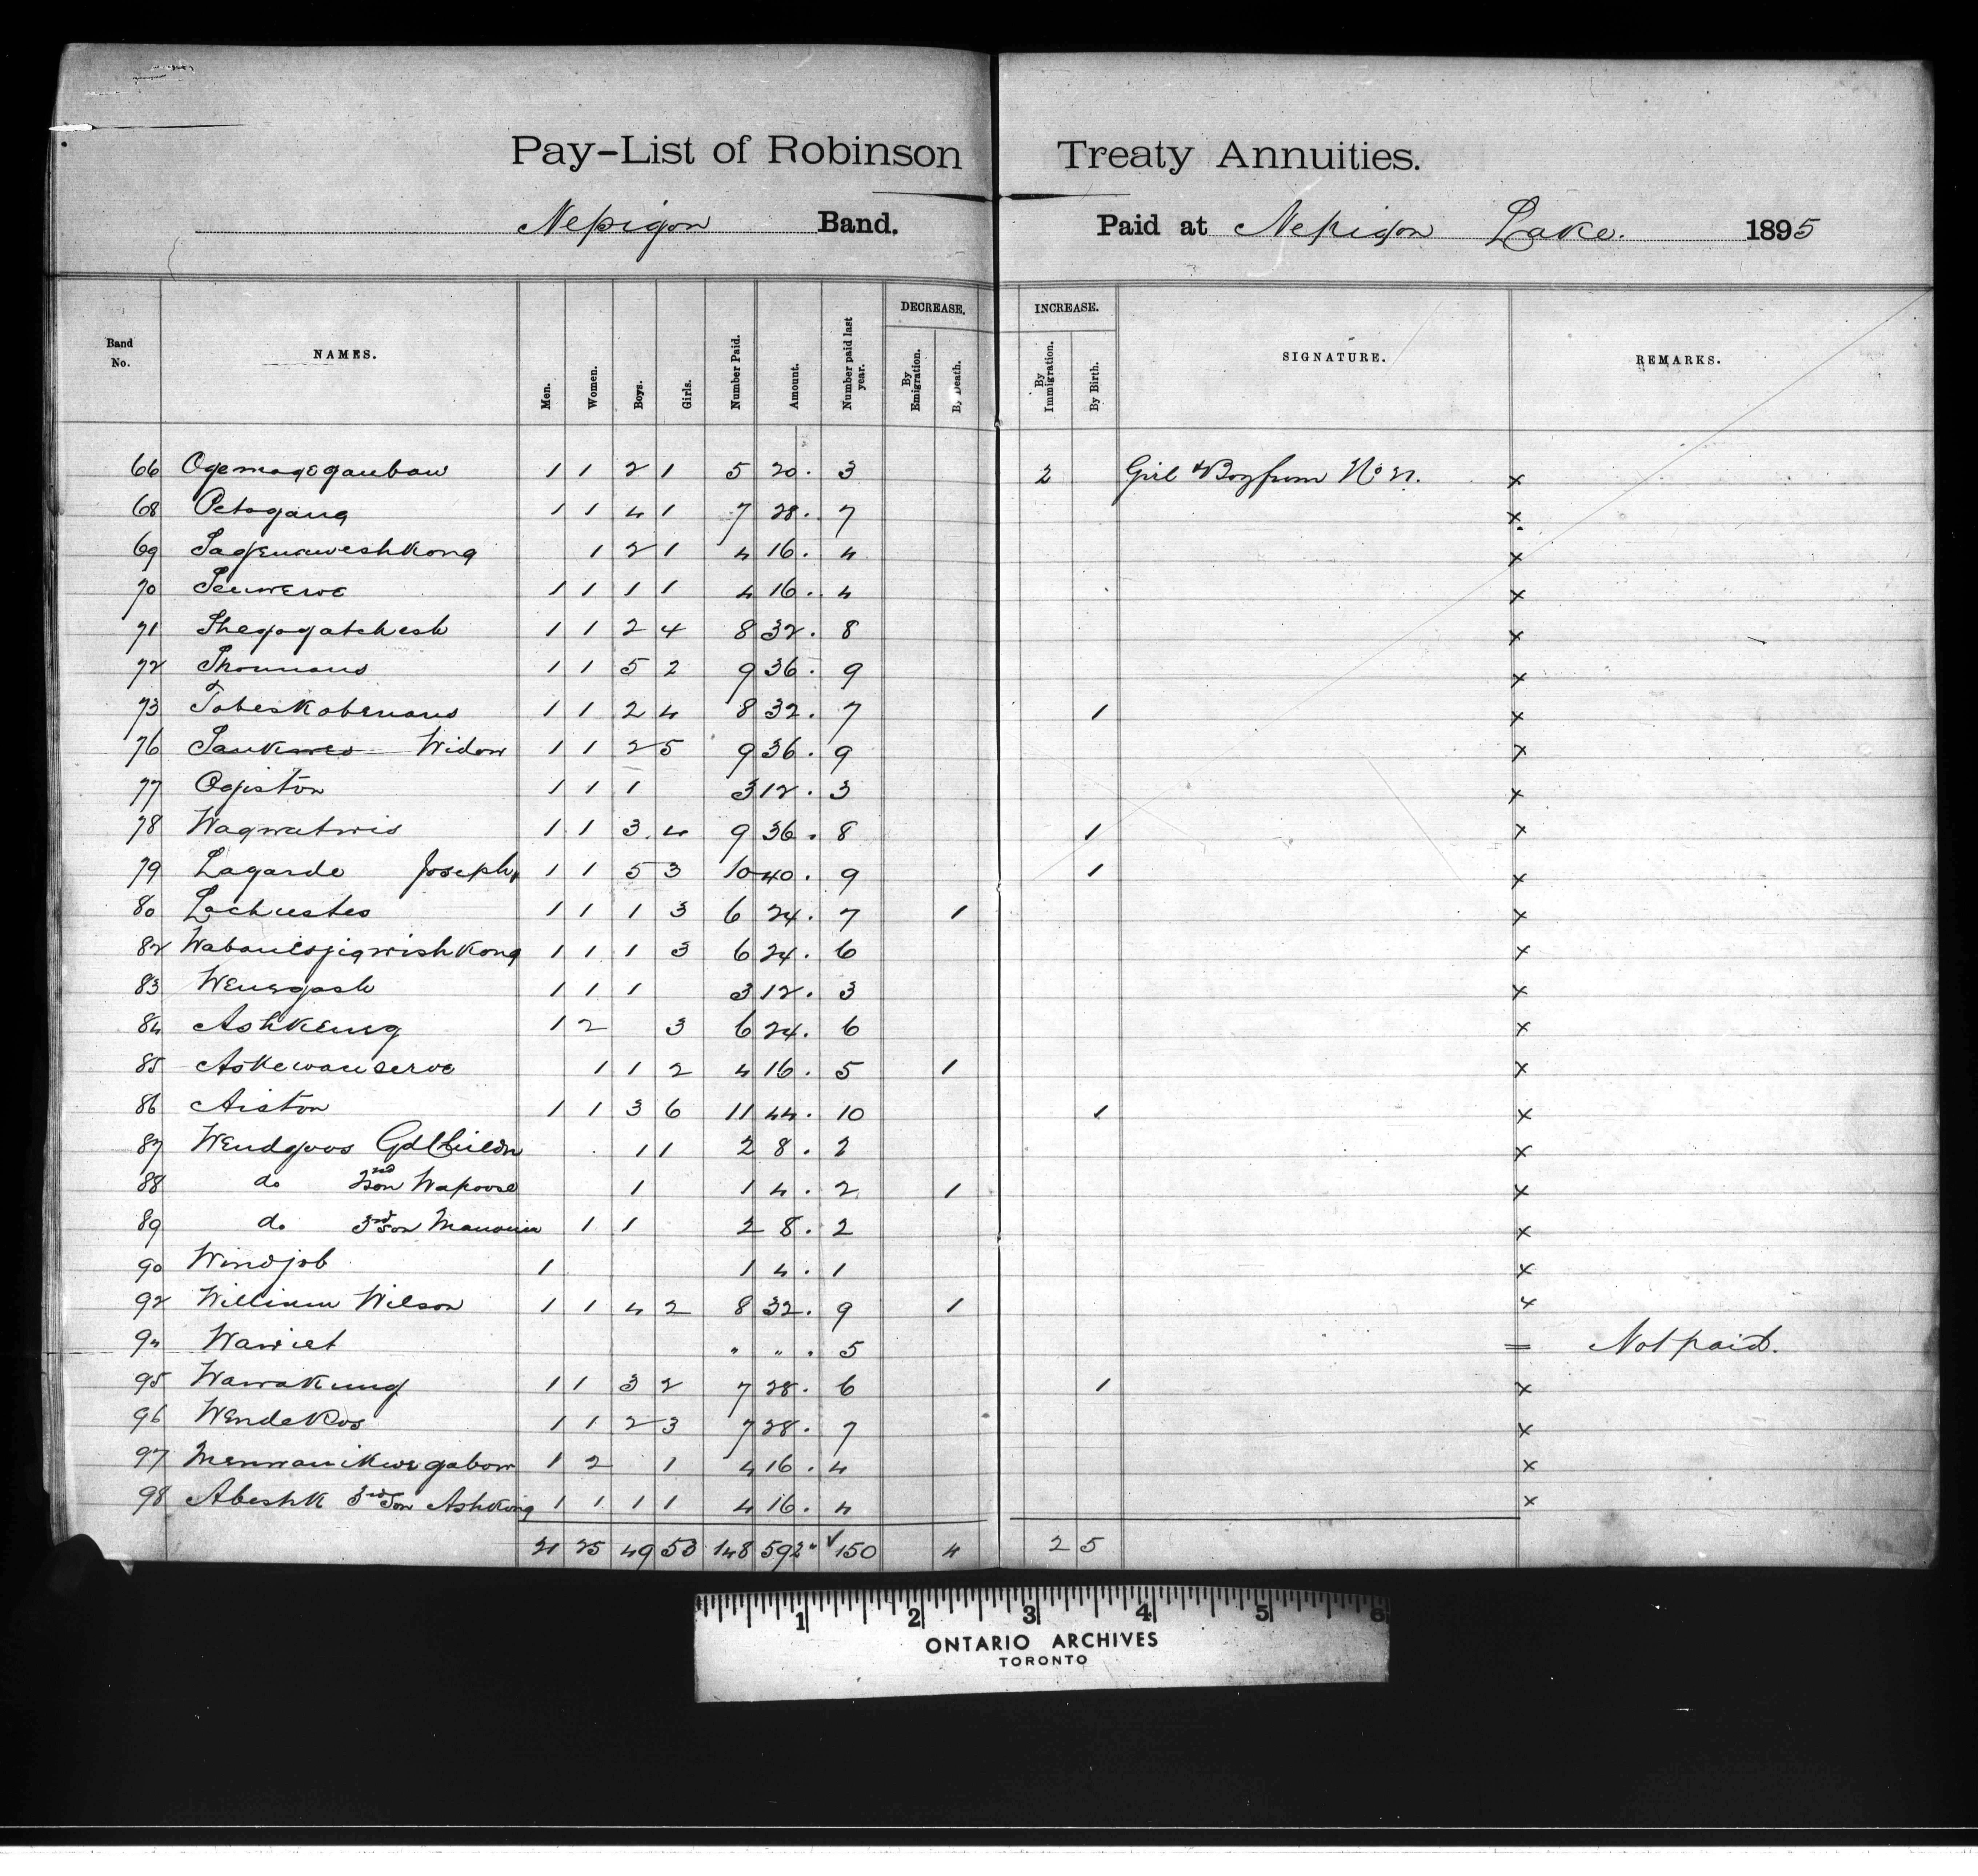 Pay-List of Robinson Treaty Annuities.
Nepigon Band. Paid at Nepigon Lake. 1895
Band No. NAMES. Men. Women. Boys. Girls. Number Paid. Amount. Number paid last year. DECREASE. By Emigration. By Death. INCREASE. By Immigration. By Birth. SIGNATURE. REMARKS.
66 Ogemagegaubau 1 1 2 1 5 20. 3 2 Girl & Boy from No x
68 Petogang 1 1 4 1 7 28. 7 x
69 1 2 1 4 16. 4 x
70 1 1 1 1 4 16. 4 x
71 Shegogatchesh 1 1 2 4 8 32. 8 x
72 1 1 5 2 9 36. 9 x
73 Tobeskobenans 1 1 2 4 8 32. 7 1 x
76 Widow 1 1 2 5 9 36. 9 x
77 Ogiston 1 1 1 3 12. 3 x
78 Wagwatwis 1 1 3. 4 9 36. 8 1 x
79 Lagarde Joseph 1 1 5 3 10 40. 9 1 x
80 Lochustes 1 1 1 3 6 24. 7 1 x
82 1 1 1 3 6 24. 6 x
83 Wenegash 1 1 1 3 12. 3 x
84 Ashkeng 1 2 3 6 24. 6 x
85 Askewanserve 1 1 2 4 16. 5 1 x
86 Aiston 1 1 3 6 11 44. 10 1 x
87 Wendgoos Gd Childn 1 1 2 8. 2 x
88 do 2nd Son Wapoose 1 1 4. 2 1 x
89 do 3rd Son 1 1 2 8. 2 x
90 Windjob 1 1 4. 1 x
92 William Wilson 1 1 4 2 8 32. 9 1 x
94 Wawiet " " . 5 = Not paid.
95 Wawakung 1 1 3 2 7 28. 6 1 x
96 Wendekos 1 1 2 3 7 28. 7 x
97 Menwanikwegabow 1 2 1 4 16. 4 x
98 Abeshk 3rd Son Ashkeng 1 1 1 1 4 16. 4 x
21 25 49 53 148 592 " ✓ 150 4 2 5
1 2 3 4 5 6
ONTARIO ARCHIVES
TORONTO